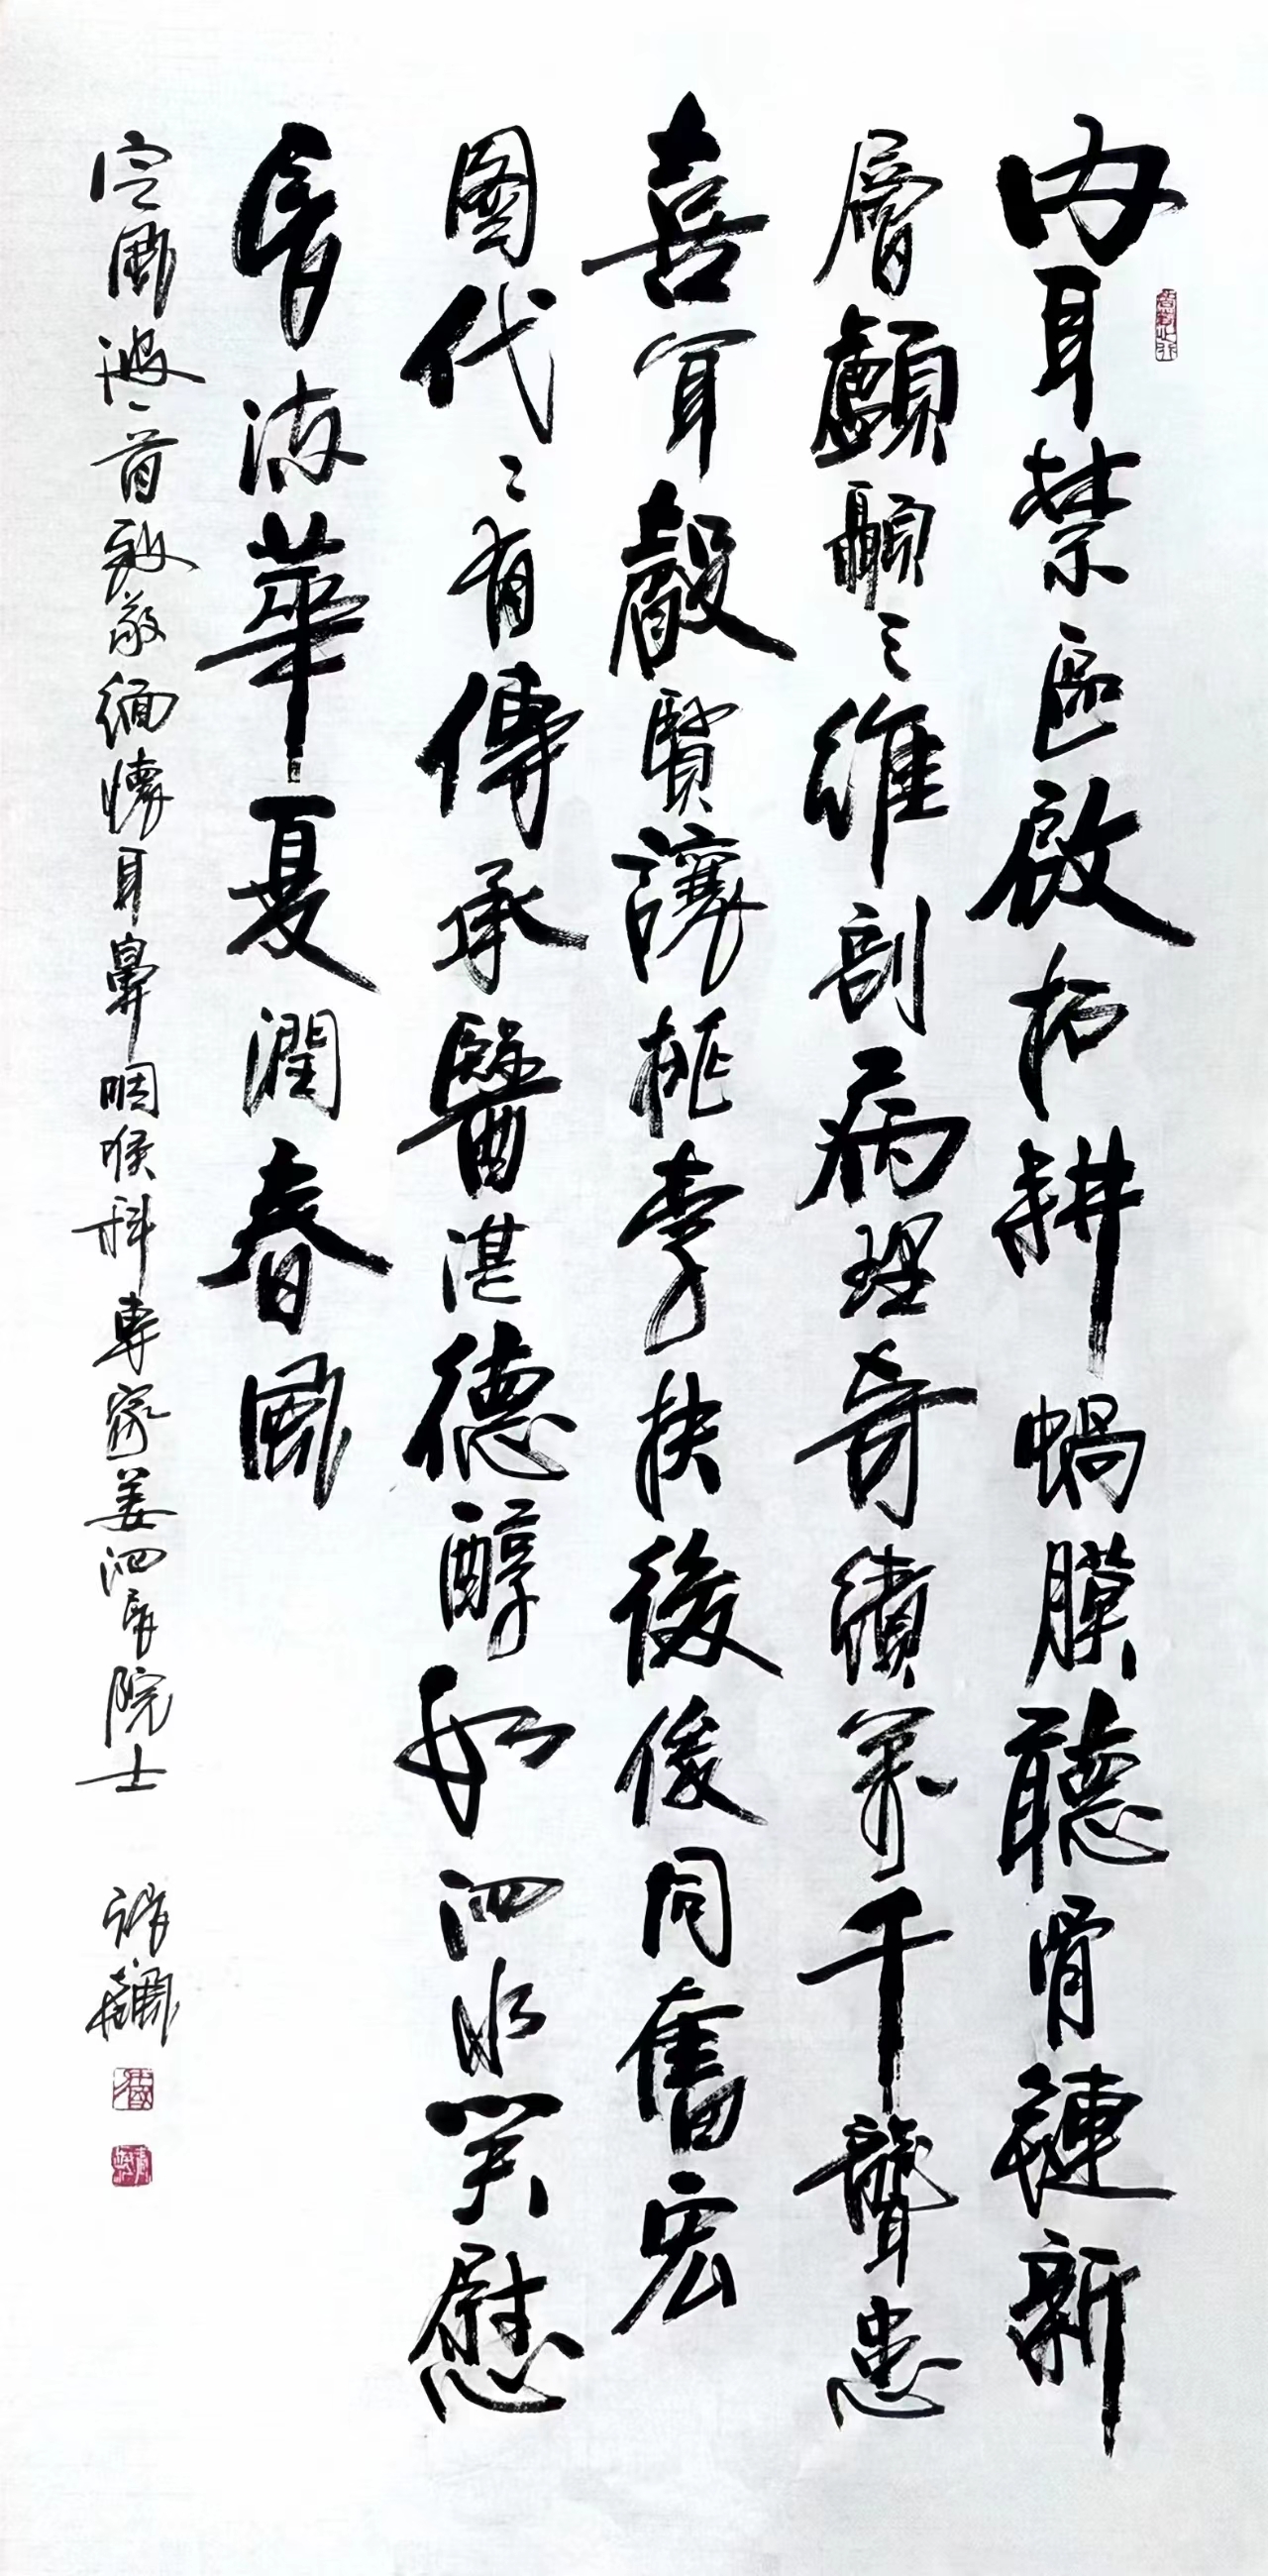 內耳禁區啟拓耕蝸膜聽骨鏈新
層顱顳三維剖病理奇績眾千聾患
喜耳聲賢讓桃李扶後俊同奮宏
圖代代有傳承醫湛德醇如泗水笑慰
長流華夏潤春風
定風波一首致敬緬懷耳鼻咽喉科專家姜泗長院士